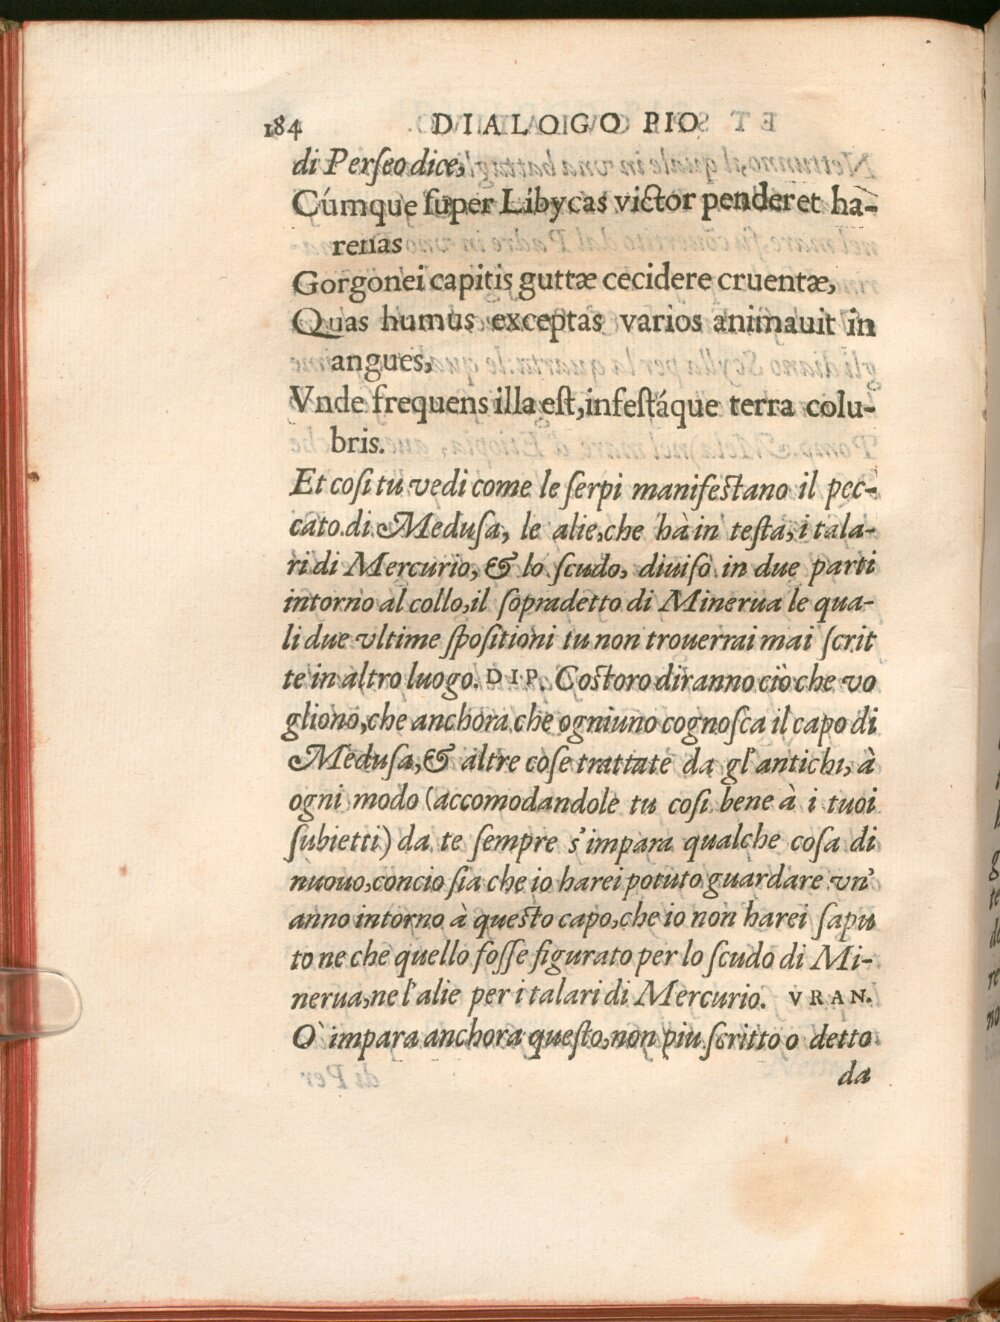 184 DIALOGO PIO
di Perſeo dice,
Cúmque ſuper Libycas victor penderet ha-
renas
Gorgonei capitis guttæ cecidere cruentæ,
Quas humus exceptas varios animauit in
angues,
Vnde frequens illa eſt, infeſtáque terra colu-
bris.
Et coſi tu vedi come le ſerpi manifeſtano il pec-
cato di Meduſa, le alie, che hà in teſta, i tala-
ri di Mercurio, & lo ſcudo, diuiſo in due parti
intorno al collo, il ſopradetto di Minerua le qua-
li due vltime ſpoſitioni tu non trouerrai mai ſcrit
te in altro luogo. DIP. Coſtoro diranno ciò che vo
gliono, che anchora che ogniuno cognoſca il capo di
Meduſa, & altre coſe trattate da gl'antichi, à
ogni modo (accomodandole tu coſi bene à i tuoi
ſubietti) da te ſempre s'impara qualche coſa di
nuouo, concio ſia che io harei potuto guardare vn'
anno intorno à queſto capo, che io non harei ſapu
to ne che quello foſſe figurato per lo ſcudo di Mi-
nerua, ne l'alie per i talari di Mercurio. VRAN.
Ò impara anchora queſto, non piu ſcritto o detto
da